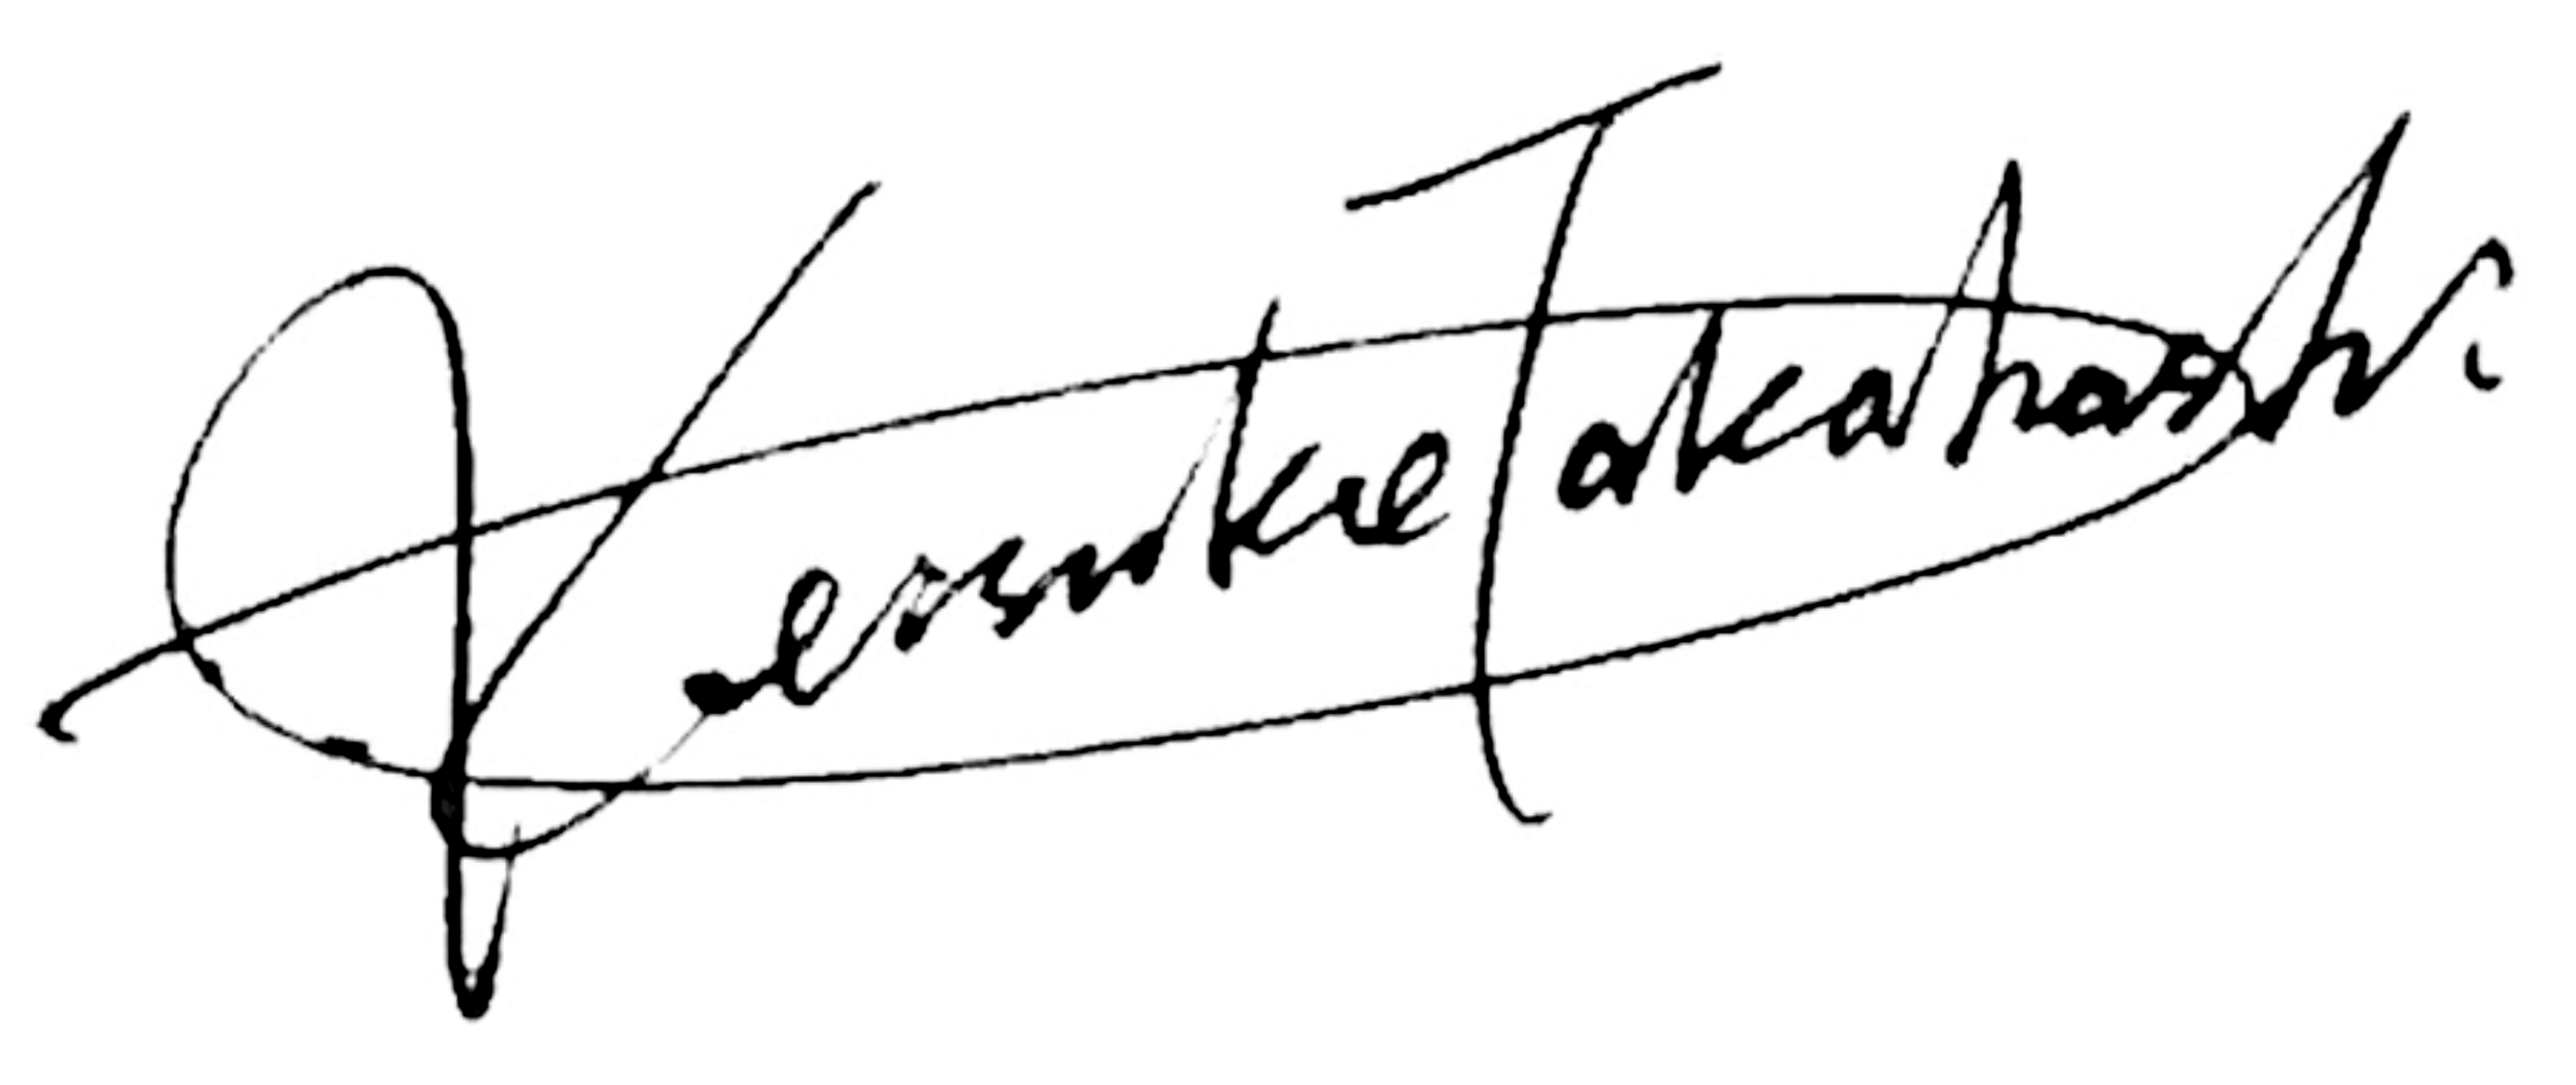 Keisuke Takahashi